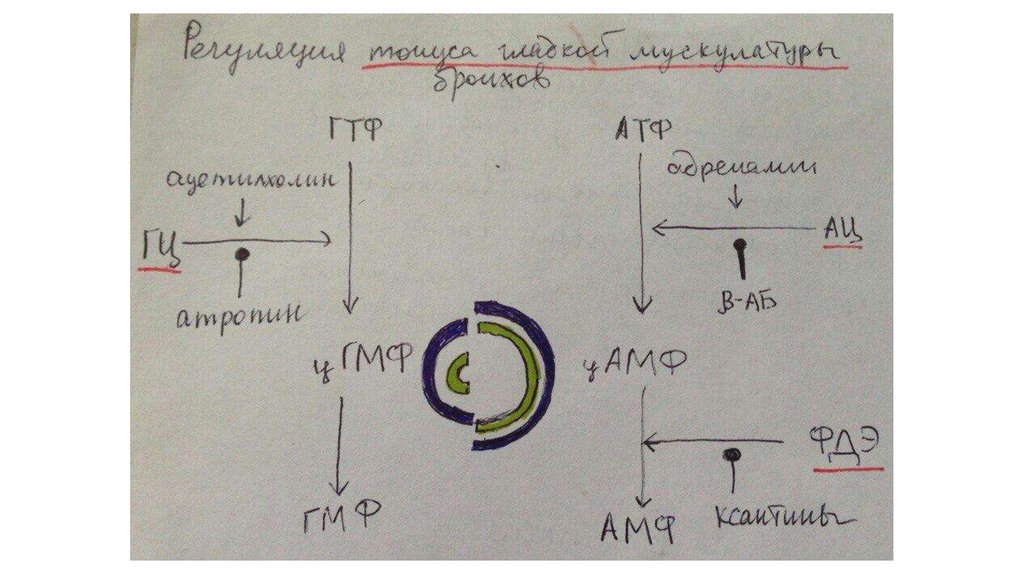 Регуляция тонуса гладкой мускулатуры
бронхов
ГТФ
АТФ
ацетилхолин
адреналин
ГЦ
АЦ
атропин
В-АБ
цГМФ
цАМФ
ФДЭ
ГМФ
АМФ
ксантины